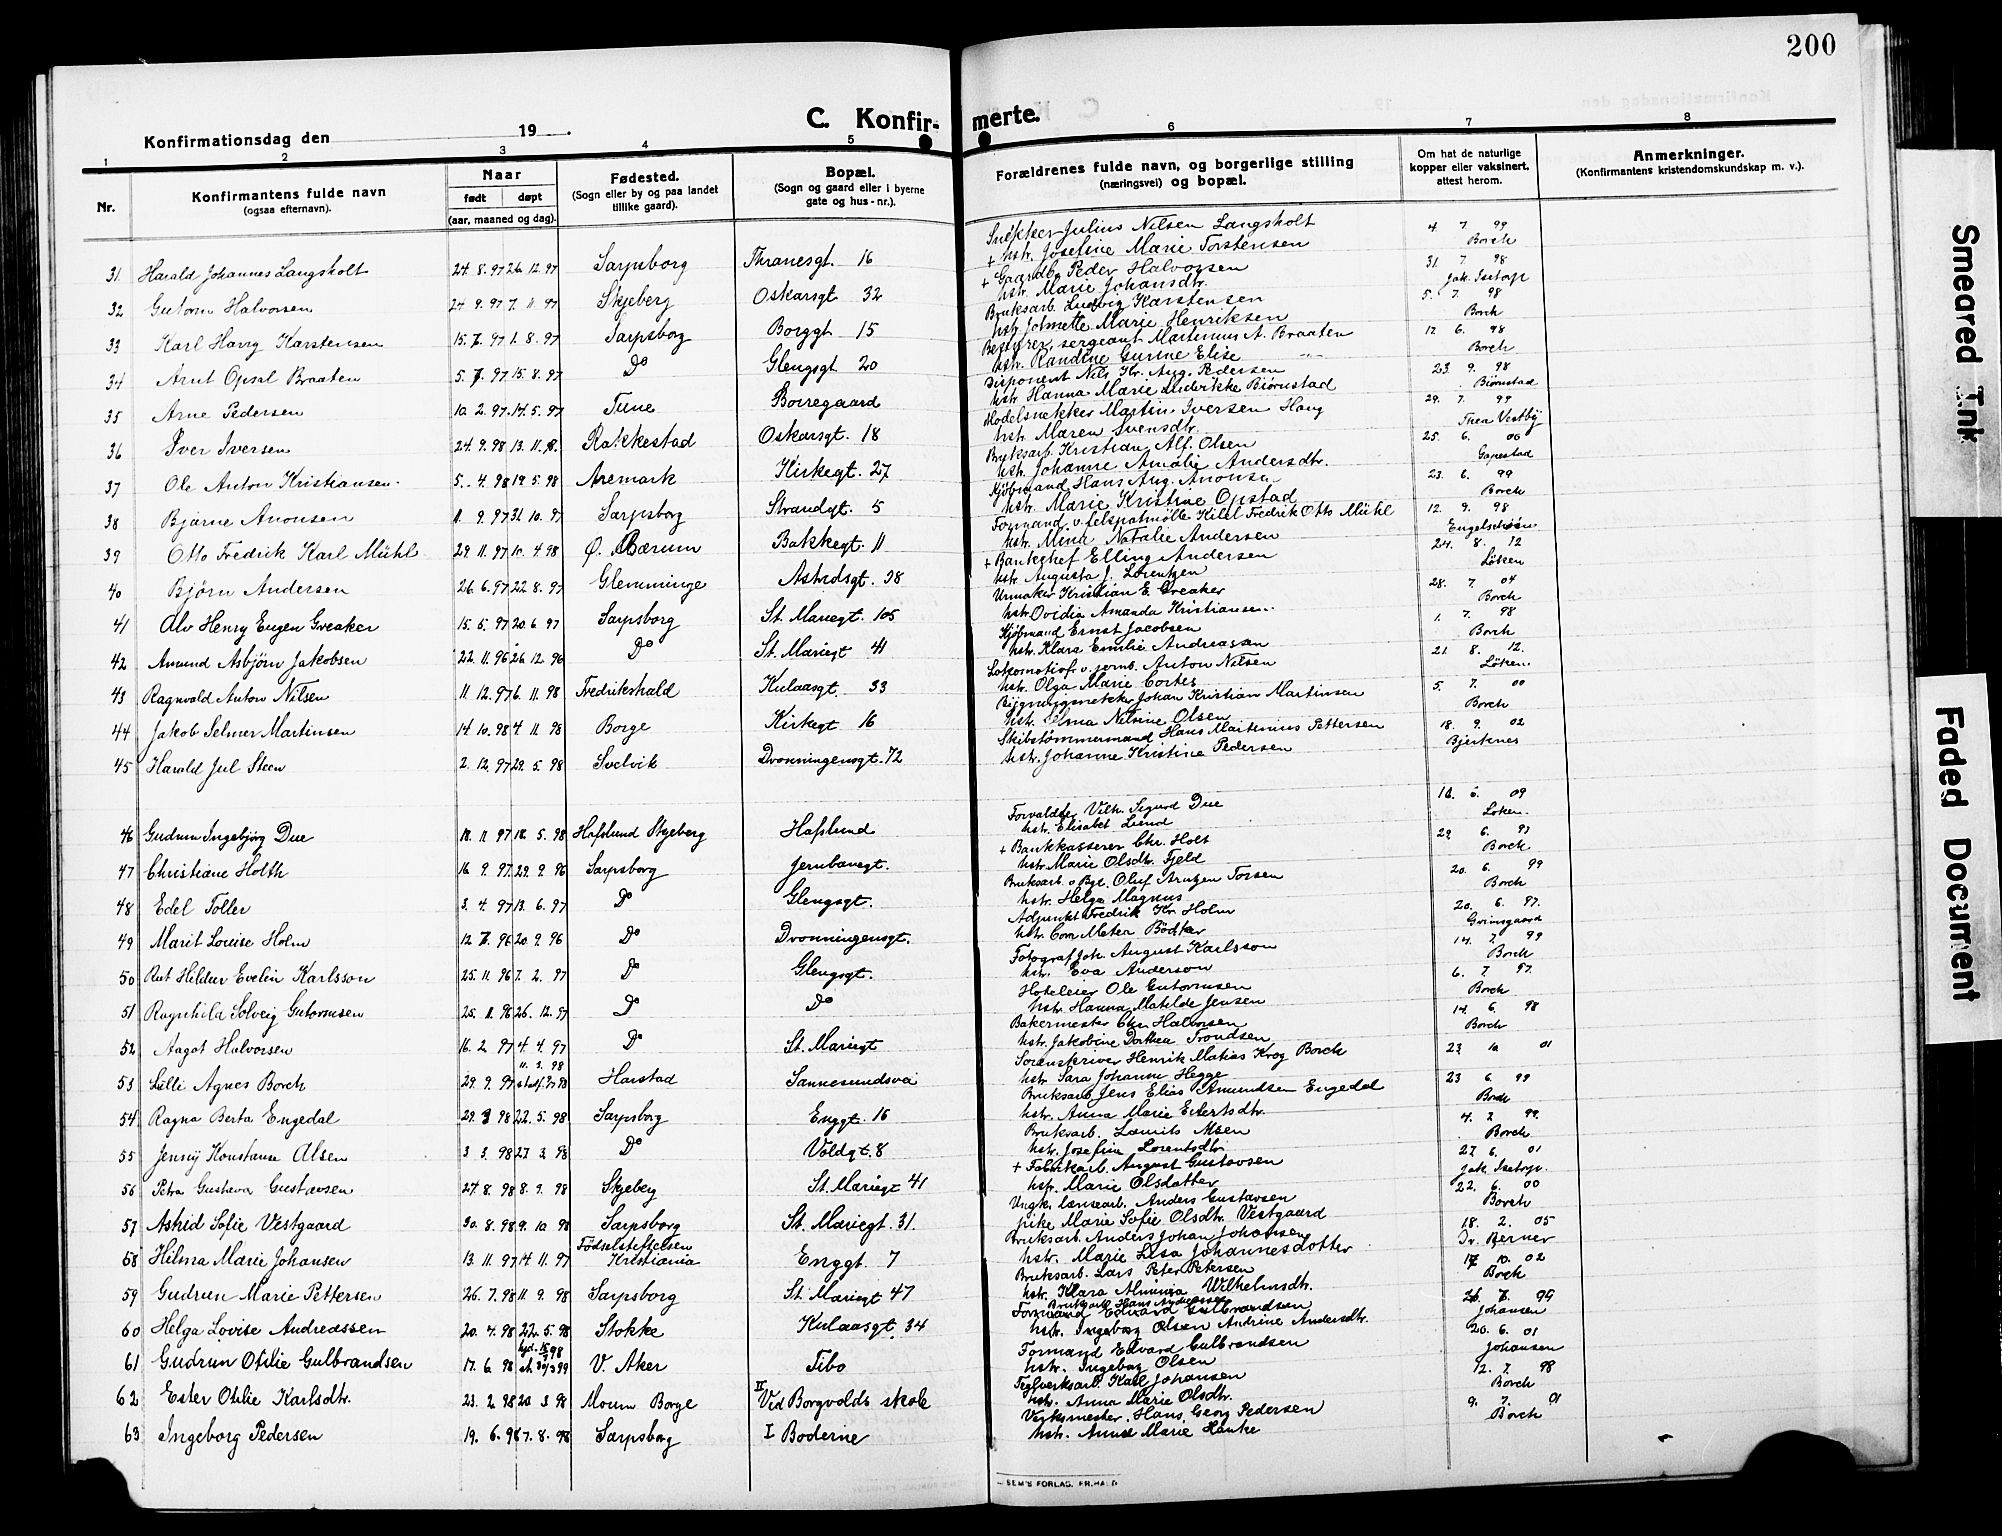 200
C. Konfir- merte.
Konfirmationsdag den 19 .
1 2 3 4 5 6 7 8
Nr.
Konfirmantens fulde navn
(ogsaa efternavn).
Naar
født døpt
(aar, maaned og dag).
Fødested.
(Sogn eller by og paa landet
tillike gaard).
Bopæl.
(Sogn og gaard eller i byerne
gate og hus-nr.).
Forældrenes fulde navn, og borgerlige stilling
(næringsvei) og bopæl.
Om hat de naturlige
kopper eller vaksinert.
attest herom.
Anmerkninger.
(Konfirmantens kristendomskundskap m. v.).
31 Harald Johannes Langsholt 24. 8. 97 26. 12. 97 Sarpsborg Thranesgt. 16 Snekker Julius Nilsen Langsholt 4 7. 99
+ hstr. Josefine Marie Torstensen Borch
32 Gutorm Halvorsen 24 9. 97 7. 11 97 Skjeberg Oskarsgt 32 + Gaardbr. Peder Halvorsen 31. 7. 98
hstr. Marie Johansdtr. Jak. Isetorp
33 Karl Harry Karstensen 15. 7. 97 1. 8. 97 Sarpsborg Borggt 15 Bruksarb. Ludvig Karstensen 5. 7. 98
hstr. Jolmette Marie Henriksen Borch
34 Arnt Opsal Braaten 5. 7. 97 15. 8. 97 Do Glengsgt 20 Bestyrer, sergeant Martinius A. Braaten 12 6. 98
hstr. Randine Gurine Elise Borch
35 Arne Pedersen 10. 2. 97 14. 5. 97 Tune Borregaard Disponent Nils Kr. Aug. Pedersen 23. 9. 98
hstr Hanna Marie Luderikke Bjørnstad Bjørnstad
36 Iver Iversen 24. 9. 98 13. 11. 98. Rakkestad Oskarsgt. 18 Modelsnekker Martin Iversen Haug 29. 7. 99
hstr. Maren Svensdtr. Thea Vestby
37 Ole Anton Kristiansen. 5. 4. 98 19. 5. 98 Aremark Kirkegt. 27 Bruksarb. Kristian Alf. Olsen 25. 6. 00
hstr. Johanne Amalie Andersdtr. Gapestad
38 Bjarne Anonsen 11. 9. 97 31. 10. 97 Sarpsborg Strandgt. 5 Kjøbmand Hans Aug. Anonsen 23. 6. 99
hstr. Marie Kristine Opstad Borch
39 Otto Fredrik Karl Mühl 29. 11. 97 10. 4 98 Ø. Bærum Bakkegt. 11 Formand v. felspatmølle Kilel Fredrik Otto Mühl 12. 9. 98
hstr. Mina Natalie Andersen
40 Bjørn Andersen 26. 6. 97 22. 8. 97 Glemminge Astridsgt. 38 + Bankchef Elling Andersen 24. 8. 12
hstr. Augusta J. Lorentzen Løken
41 Alv Henry Eugen Greaker 15. 5. 97 20. 6. 97 Sarpsborg St. Mariegt. 105 Urmaker Kristian E. Greaker 28. 7. 04
hstr Ovidia Amanda Kristiansen. Borch
42 Amund Asbjørn Jakobsen 22. 11. 96 26 12. 96 Do St. Mariegt 41 Kjøbmand Ernst Jacobsen 1. 7. 98
hstr. Klara Emilie Andreasen Borch
43 Ragnvald Anton Nilsen 11. 12. 97 6. 11. 98 Fredrikshald Kulaasgt. 33 Lokomotivf. v. jernb. Anton Nilsen 21. 8. 12.
hstr. Olga Marie Cortes Løken.
44 Jakob Selmer Martinsen 14 10. 98 4 11 98 Borge Kirkegt 16 Bygningssnekker Johan Kristian Martinsen 5. 7. 00
hstr. Selma Nilsine Olsen Borch
45 Harald Jul Steen 2. 12. 97 29. 5. 98 Svelvik Dronningensgt. 72 Skibstømmermand Hans Martinius Pettersen 18. 9. 02
hstr. Johanne Kristine Pedersen Bjerknes
46 Gudrun Ingebjørg Due 18. 11. 97 18. 5. 98 Hafslund Skjeberg Hafslund Forvalter Vilh. Sigurd Due 18. 6. 09
hstr. Elisabet Lund Løken.
47 Christiane Holth 16. 9. 97 29. 9. 96 Sarpsborg Jernbanegt. + Bankkasserer Chr. Holt 29 6. 97
hstr. Marie Olsdtr. Fjeld Borch
48 Edel Toller 3. 4. 97 13. 6. 97 Do Glengsgt. Bruksarb. v Bgt. Oluf Arntzen Torsen 20. 6. 99
hstr. Helga Magnus Borch
49 Marit Louise Holm 12 7. 96 20. 9. 96 Do Dronningensgt. Adjunkt Fredrik Kr. Holm 20. 6. 97.
hstr. Cora Meta Bødtker Grimsgaard
50 Rut Hildur Evelin Karlsson 25. 11. 96 7. 2. 97 Do Glengsgt. Fotograf Joh. August Karlsson 14. 7. 99
hstr. Eva Anderson Borch
51 Ragnhild Solveig Gutormsen 25. 11. 98 26. 12. 97 Do Do Hoteleier Ole Gutormsen 6. 7. 97.
hstr. Hanna Matilde Jensen Borch
52 Aagot Halvorsen 16. 2. 97 4. 4. 97 Do St. Mariegt Bakermester Chr. Halvorsen 14. 6. 98
hstr. Jakobine Dorthea Trondsen Borch
53 Lilli Agnes Borch 29. 9. 97 11. 3. 98 Harstad Sannesundsvei Sorenskriver Henrik Matias Krog Borch 23 10 01
hstr. Sara Johanne Hegge
54 Ragna Berta Engedal 29. 3 98 22. 5. 98 Sarpsborg Enggt 16 Bruksarb. Jens Elias Amundsen Engedal 23 6. 99
hstr. Anna Marie Evertsdtr. Borch
55 Jenny Konstanse Olsen 3 3. 98 27. 3. 98 Do Voldgt. 8 Bruksarb. Laurits Olsen 4. 2 99.
hstr. Josefine Lorentsdtr Borch
56 Petra Gustava Gustavsen 27. 8. 98 8. 9. 98 Skjeberg St. Mariegt 41 + Fabrikarb. August Gustavsen 27. 6. 01
hstr. Marie Olsdatter Jak. Isetorp.
57 Astrid Sofie Vestgaard 30. 8. 98 9. 10. 98 Sarpsborg St. Mariegt. 31. Ungk. lænsearb. Anders Gustavsen 22. 6. 00
pike Marie Sofie Olsdtr. Vestgaard Borch
58 Hilma Marie Johansen 13. 11. 97 14 11. 97 Fødselsstiftelsen Kristiania Enggt. 7 Bruksarb. Anders Johan Johansen 18. 2. 05
hstr. Marie Lisa Johannesdotter Dr. Berner
59 Gudrun Marie Pettersen 26. 7. 98 11. 9. 98 Sarpsborg St. Mariegt 47 Bruksarb. Lars Peter Petersen 17 10. 02
hstr. Klara Alminia Wilhelmsdtr. Borch
60 Helga Lovise Andreassen 20. 4. 98 22. 5. 98 Stokke Kulaasgt. 34 Bruksarb. Hans Andreassen 26 7. 99
Formand Edvard Gulbrandsen
hstr. Ingeborg Olsen Andrine Andersdtr. Johansen
61 Gudrun Otilie Gulbrandsen 17. 6. 98 V. Aker Tibo Formand Edvard Gulbrandsen 20. 6. 01
hstr. Ingeborg Olsen Johansen
62 Ester Otilie Karlsdtr. 23. 2. 98 20 3 98 Moum Borge II Vid Borgvolds skole Teglverksarb. Karl Johansen 12. 7. 98
hstr. Anna Marie Olsdtr. Borch
63 Ingeborg Pedersen 19. 6. 98 7. 8. 98 Sarpsborg I Boderne Verksmester. Hans Georg Pedersen 9. 7. 01
hstr. Anna Marie Hanke Borch
SEM'S FORLAG. FR.HALD
Smeared Ink
Faded Document